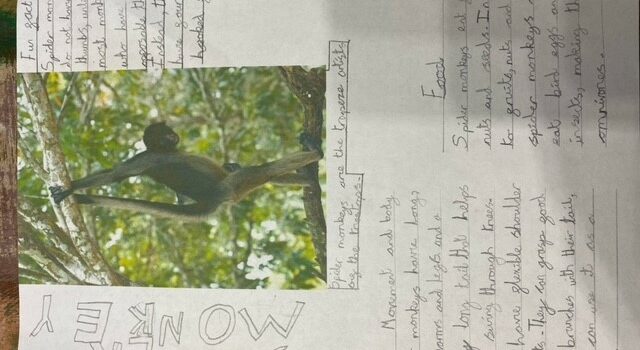 MONKEY
Fun fact
Spider mon
do not have
most monk
who have
Instead th
have four
hooked
Spider monkeys are the trapeze artists
og the treetops.
Movement and body
monkeys have long
arms and legs and a
y long tail that helps
swing through trees.
have flexible shoulder
ts. They can grasp good
branches with their tail,
can use it as a
Food
Spider monkeys eat
nuts and seeds. In
to fruits, nuts and
spider monkeys
eat bird eggs an
insects, making th
omnivores.